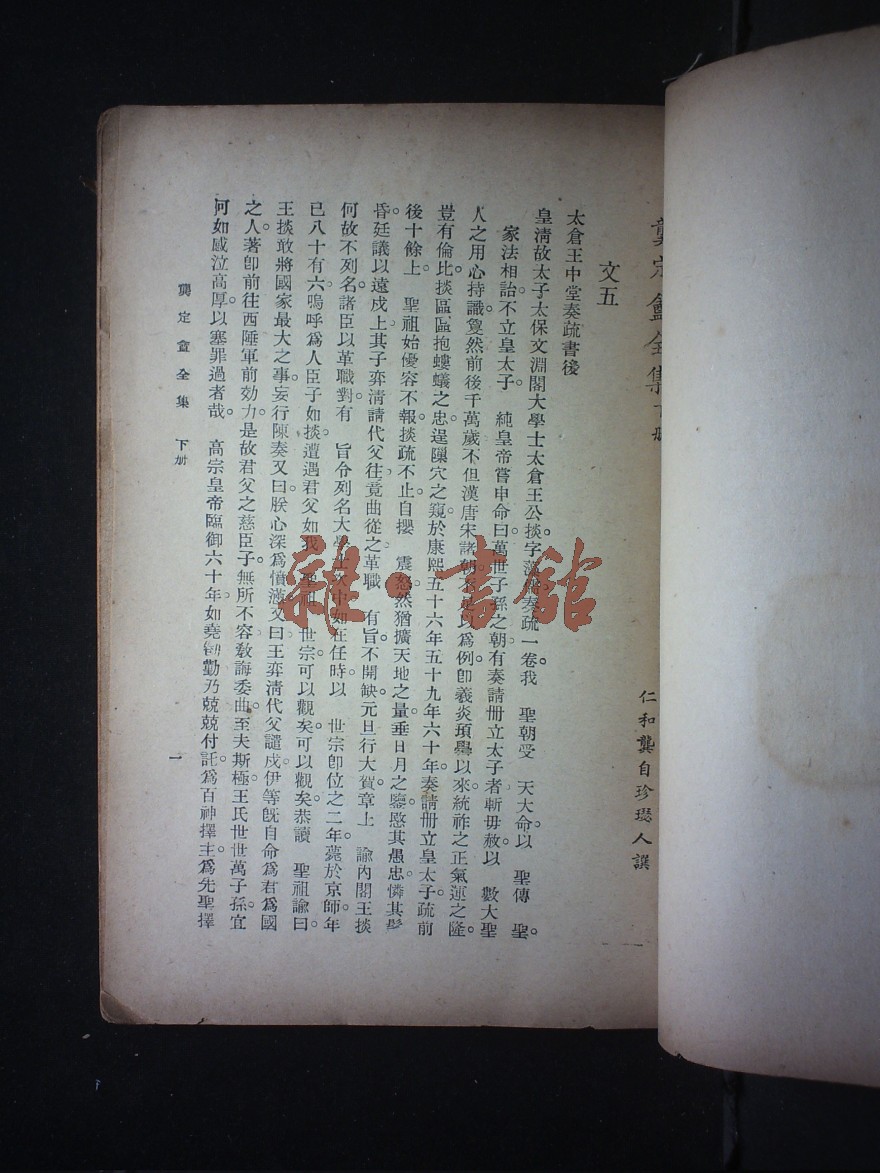 龔定盦全集下册
仁和龔自珍璱人譔
文五
太倉王中堂奏疏書後
皇清故太子太保文淵閣大學士太倉王公掞字藻儒奏疏一卷。我　聖朝受　天大命。以　聖傳　聖。
家法相詒。不立皇太子。　純皇帝嘗申命曰。萬世子孫之朝。有奏請冊立太子者。斬毋赦。以　數大聖
人之用心持識。夐然前後千萬歲。不但漢唐宋諸朝不足以為例。卽羲炎頊嚳以來。統祚之正。氣運之隆。
豈有倫比。掞區區抱螻蟻之忠。逞隟穴之窺。於康熙五十六年五十九年六十年。奏請冊立皇太子。疏前
後十餘上　聖祖始優容不報。掞疏不止。自攖　震怒。然猶擴天地之量。垂日月之鑒。愍其愚忠。憐其髦
昏。廷議以遠戍上。其子奕清請代父往。竟曲從之。革職　有旨不開缺。元旦行大賀。章上　諭內閣王掞
何故不列名。諸臣以革職對。有　旨令列名大學士次中。如在任時。以　世宗卽位之二年。薨於京師。年
已八十有六。嗚呼。為人臣子如掞。遭遇君父如我　聖祖　世宗。可以觀矣。可以觀矣。恭讀　聖祖諭曰。
王掞敢將國家最大之事。妄行陳奏。又曰。朕心深為憤懣。又曰。王奕清代父譴戍。伊等旣自命為君為國
之人。著卽前往西陲軍前効力。是故君父之慈臣子。無所不容。敎誨委曲。至夫斯極。王氏世世萬子孫。宜
何如感泣高厚。以塞罪過者哉。　高宗皇帝臨御六十年。如堯勌勤。乃兢兢付託。為百神擇主。為先聖擇
龔定盦全集　下册
一
雜·書館